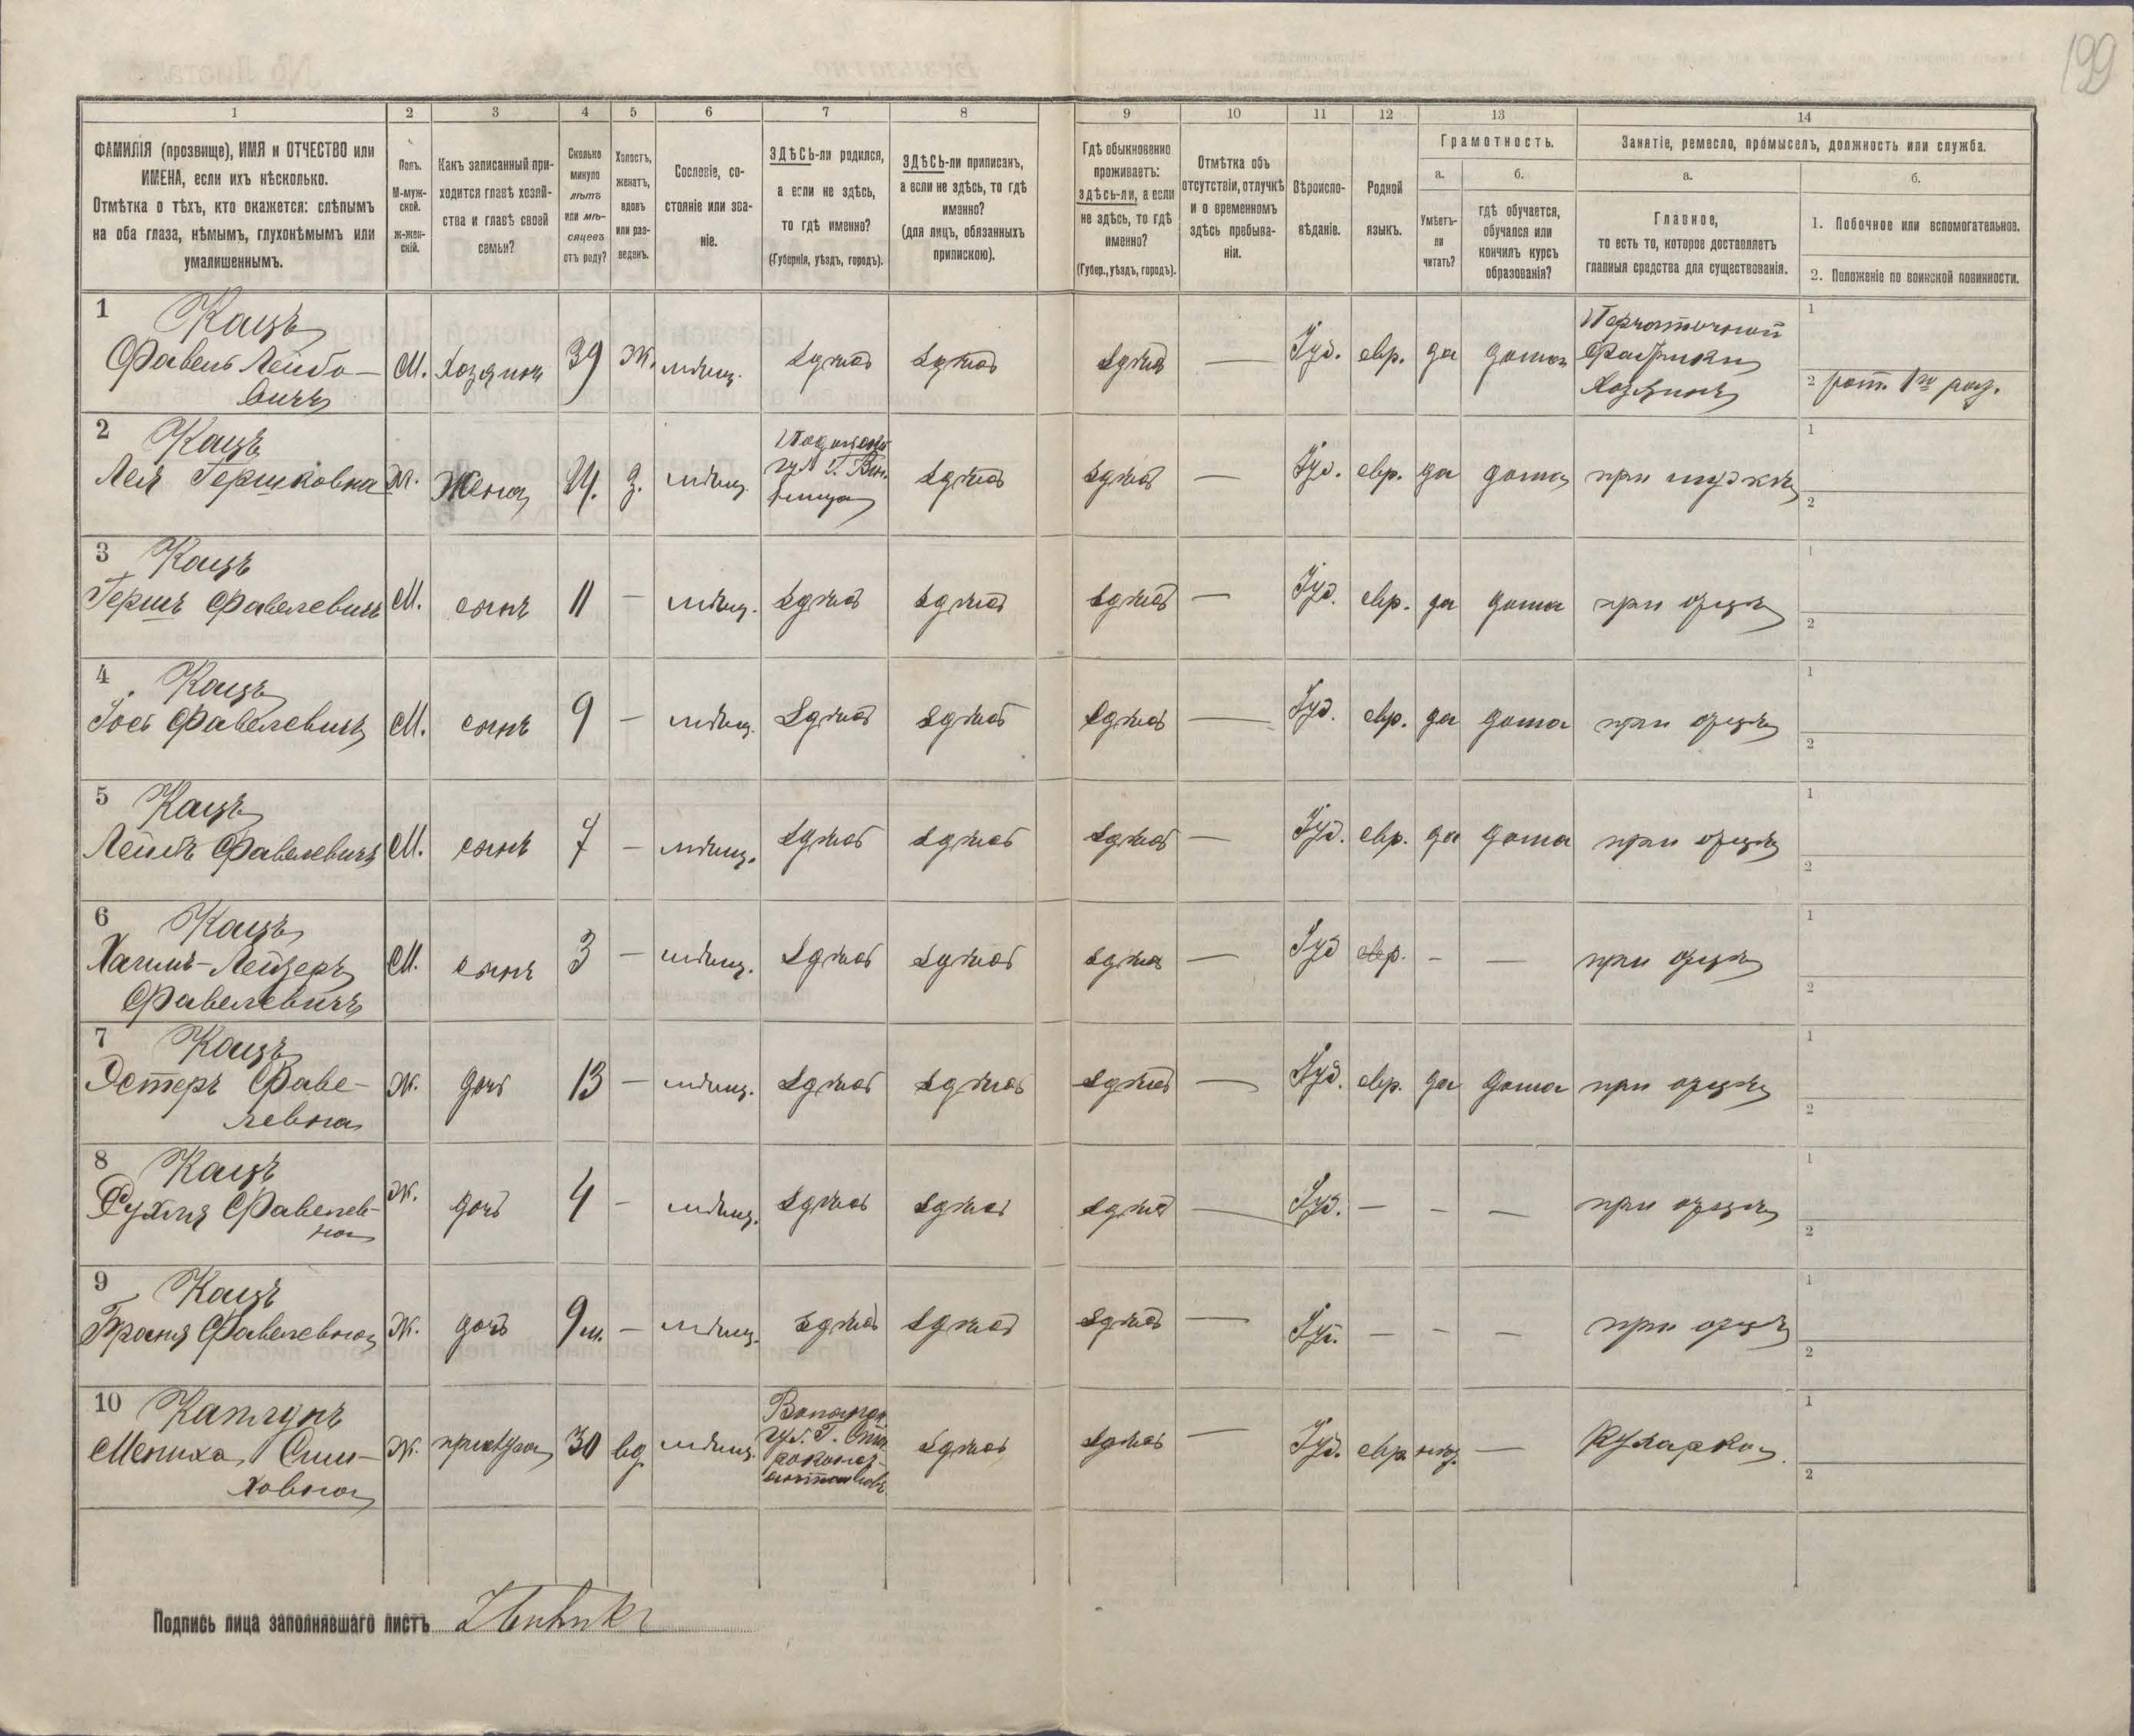 199
1 2 3 4 5 6 7 8 9 10 11 12 13 14
ФАМИЛІЯ (прозвище), ИМЯ и ОТЧЕСТВО или
ИМЕНА, если ихъ нѣсколько.
Отмѣтка о тѣхъ, кто окажется: слѣпымъ
на оба глаза, нѣмымъ, глухонѣмымъ или
умалишеннымъ.
Полъ.
М-муж-
ской.
ж-жен-
скій.
Какъ записанный при-
ходится главѣ хозяй-
ства и главѣ своей
семьи?
Сколько
минуло
лѣтъ
или мѣ-
сяцевъ
отъ роду?
Холостъ,
женатъ,
вдовъ
или раз-
веденъ.
Сословіе, со-
стояніе или зва-
ніе.
ЗДѢСЬ-ли родился,
а если не здѣсь,
то гдѣ именно?
(Губернія, уѣздъ, городъ).
ЗДѢСЬ-ли приписанъ,
а если не здѣсь, то гдѣ
именно?
(для лицъ, обязанныхъ
припискою).
Гдѣ обыкновенно
проживаетъ:
здѣсь-ли, а если
не здѣсь, то гдѣ
именно?
(Губер., уѣздъ, городъ).
Отмѣтка объ
отсутствіи, отлучкѣ
и о временномъ
здѣсь пребыва-
ніи.
Вѣроиспо-
вѣданіе.
Родной
языкъ.
Грамотность.
а.
Умѣетъ-
ли
читать?
б.
гдѣ обучается,
обучался или
кончилъ курсъ
образованія?
Занятіе, ремесло, промыселъ, должность или служба.
а.
Главное,
то есть то, которое доставляетъ
главныя средства для существованія.
б.
1. Побочное или вспомогательное.
2. Положеніе по воинской повинности.
1 Кацъ
Фавель Лейбо-
вичъ
М. Хозяинъ 39 Ж. мѣщ. Здѣсь Здѣсь Здѣсь — Іуд. евр. да дома
Перчаточной
Фабрики
Хозяинъ
1
2 рат. 1го раз.
2 Кацъ
Лея Гершковна Ж. Жена З. мѣщ.
Г. Вин-
ница
Здѣсь Здѣсь — Іуд. евр. да дома при мужѣ
1
2
3 Кацъ
Гершъ Фавелевичъ М. сынъ 11 — мѣщ. Здѣсь Здѣсь Здѣсь — Іуд. евр. да дома при отцѣ
1
2
4 Кацъ
Іось Фавелевичъ М. сынъ 9 — мѣщ. Здѣсь Здѣсь Здѣсь — Іуд. евр. да дома при отцѣ
1
2
5 Кацъ
Фавелевичъ М. сынъ 7 — мѣщ. Здѣсь Здѣсь Здѣсь — Іуд. евр. да дома при отцѣ
1
2
6 Кацъ
Хаимъ-Лейзеръ
Фавелевичъ
М. сынъ 3 — мѣщ. Здѣсь Здѣсь Здѣсь — Іуд евр. - — при отцѣ
1
2
7 Кацъ
Эстеръ Фаве-
левна
Ж. дочь 13 — мѣщ. Здѣсь Здѣсь Здѣсь — Іуд. евр. да дома при отцѣ
1
2
8 Кацъ
Рухля Фавелев-
на
Ж. дочь 4 - мѣщ. Здѣсь Здѣсь Здѣсь — Іуд. — - — при отцѣ
1
2
9 Кацъ
Броня Фавелевна Ж. дочь 9 м. — мѣщ. Здѣсь Здѣсь Здѣсь — Іуд. — - — при отцѣ
1
2
10
Мениха Сим-
ховна
Ж. прислуга 30 вд. мѣщ.
Волынск.
Г. Ста-
роконст-
антиновъ
Здѣсь Здѣсь — Іуд. евр. — Кухарка
1
2
Подпись лица заполнявшаго листъ